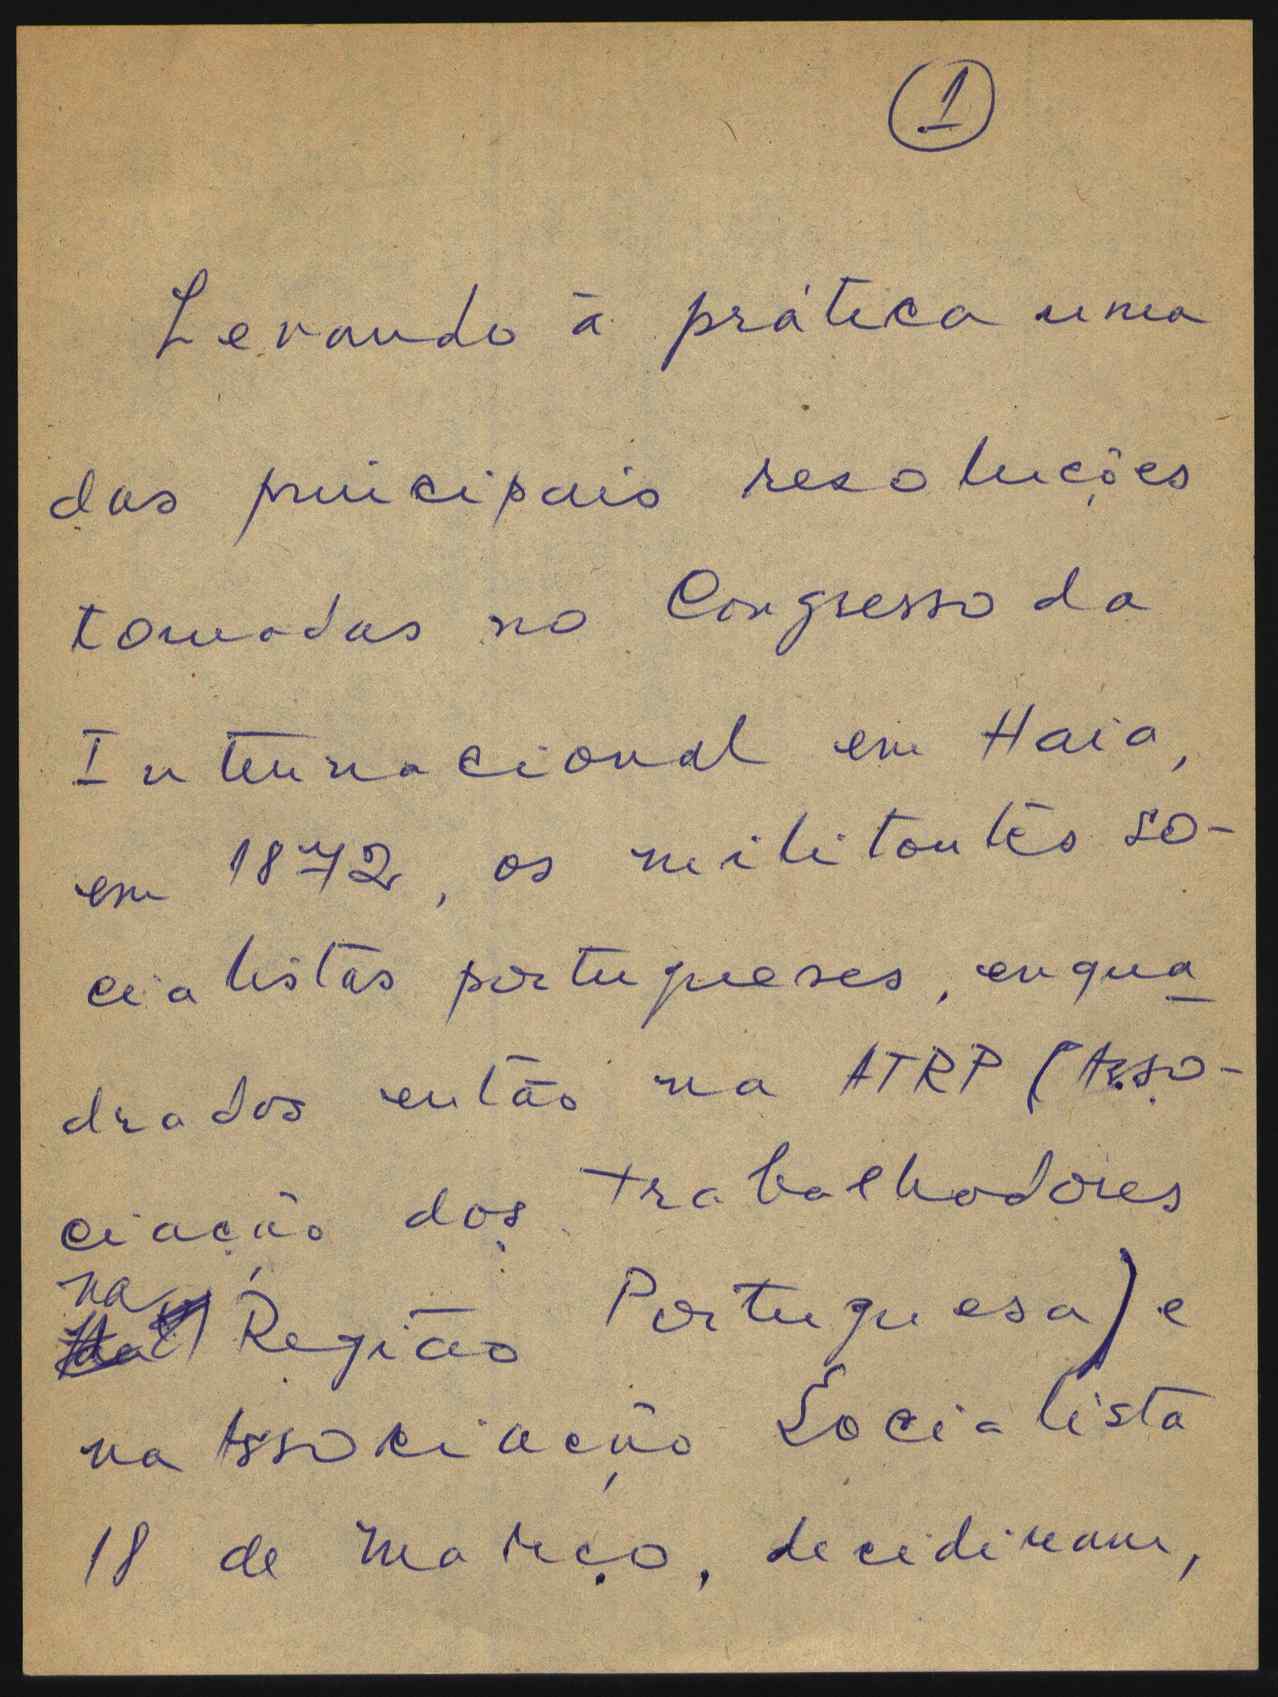 1
Levando à prática uma
das principais resoluções
tomadas no Congresso da
Internacional em Haia,
em 1872, os militantes so-
cialistas portugueses, enqua
drados então na ATRP (Asso-
ciação dos trabalhadores
na
Região Portuguesa) e
na Associação Socialista
18 de Março, decidiram,